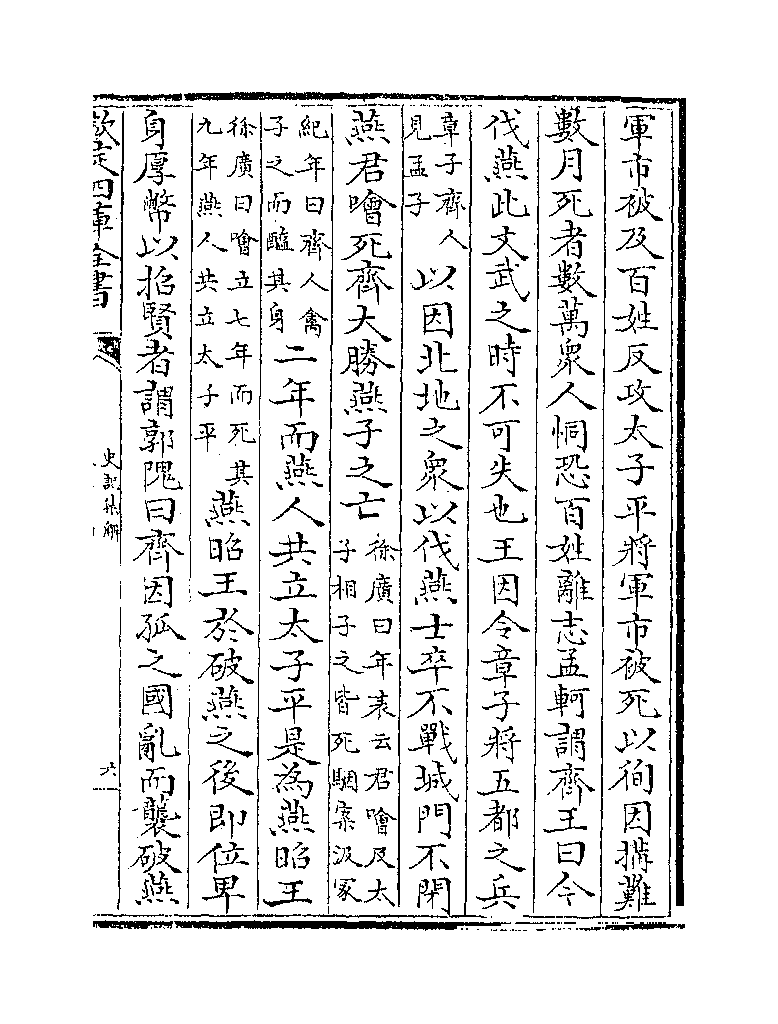 軍市被及百姓反攻太子平將軍市被死以徇因搆難
數月死者數萬衆人恫恐百姓離志孟軻謂齊王曰今
伐燕此文武之時不可失也王因令章子將五都之兵
章子齊人
見孟子
以因北地之衆以伐燕士卒不戰城門不閉
燕君噲死齊大勝燕子之亡
徐廣曰年表云君噲及太
子相子之皆死駰案汲冢
紀年曰齊人禽
子之而醢其身
二年而燕人共立太子平是為燕昭王
徐廣曰噲立七年而死其
九年燕人共立太子平
燕昭王於破燕之後即位卑
身厚幣以招賢者謂郭隗曰齊因孤之國亂而襲破燕
欽定四庫全書
史記集解
六